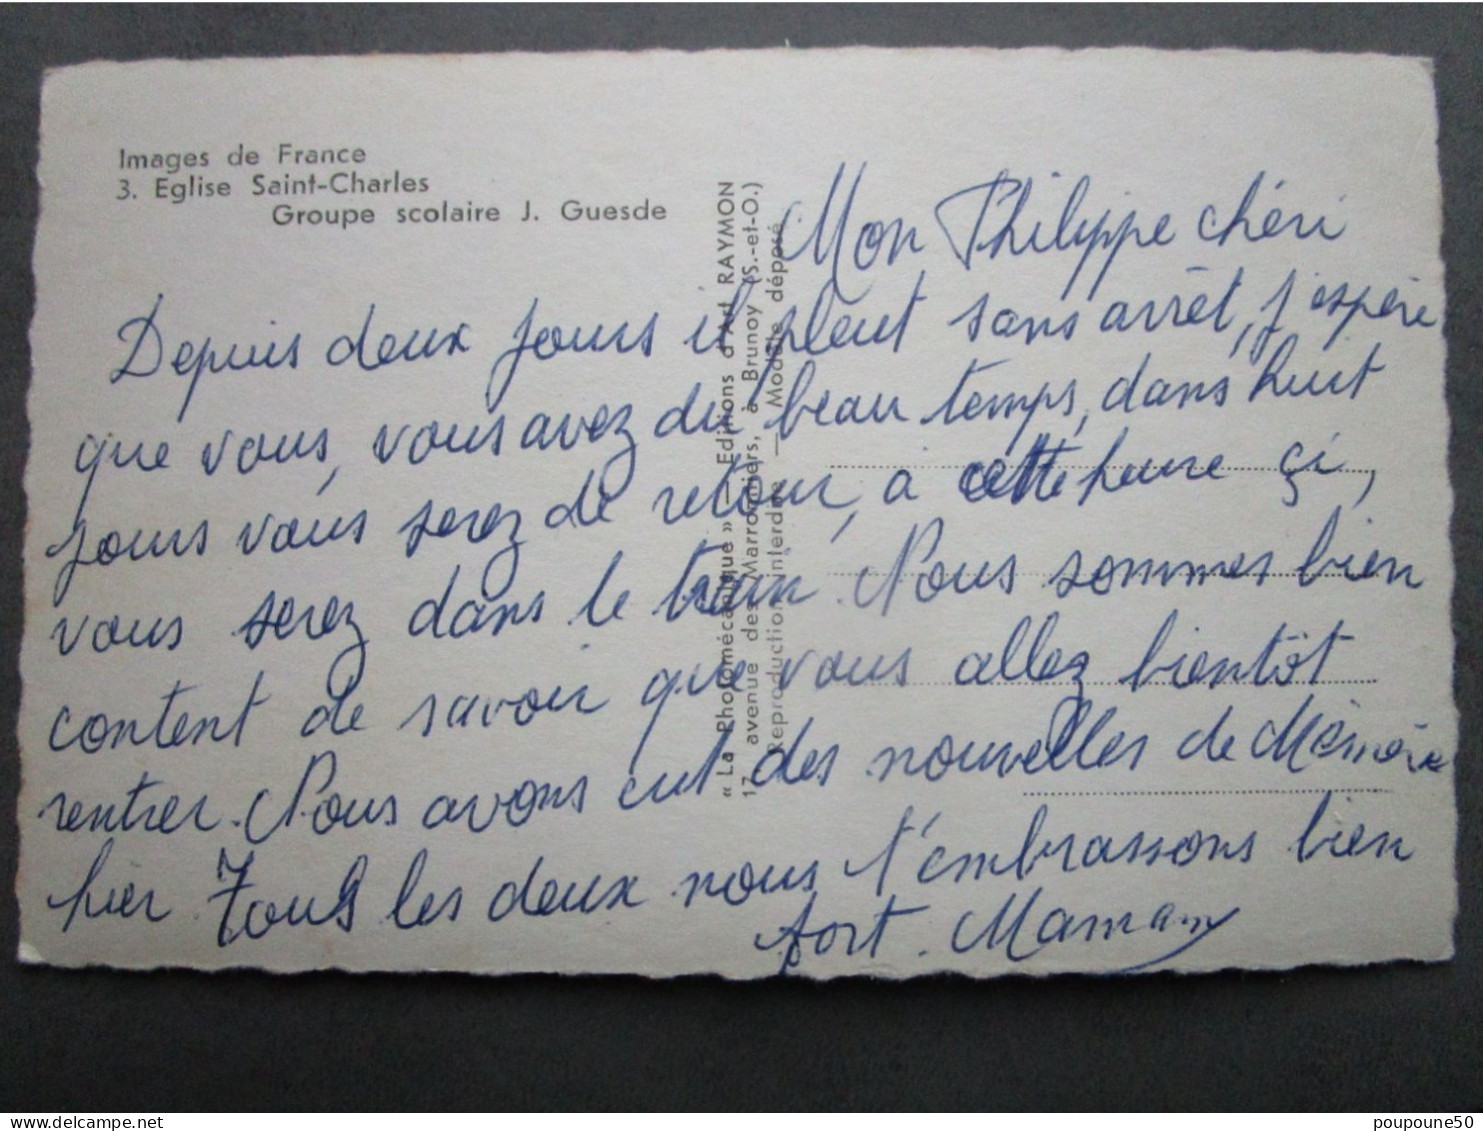 Images de France
3. Eglise Saint-Charles
Groupe scolaire J. Guesde
« La Photomécanique » — Editions d'Art RAYMON
17, avenue des Marronniers, à Brunoy (S.-et-O.)
Reproduction interdite — Modèle déposé
Mon Philippe chéri
Depuis deux jours il pleut sans arrêt, j'espère
que vous, vous avez du beau temps, dans huit
jours vous serez de retour, à cette heure çi,
vous serez dans le train. Nous sommes bien
content de savoir que vous allez bientôt
rentrer. Nous avons eut des nouvelles de Mémère
hier Tous les deux nous t'embrassons bien
fort. Maman
poupoune50